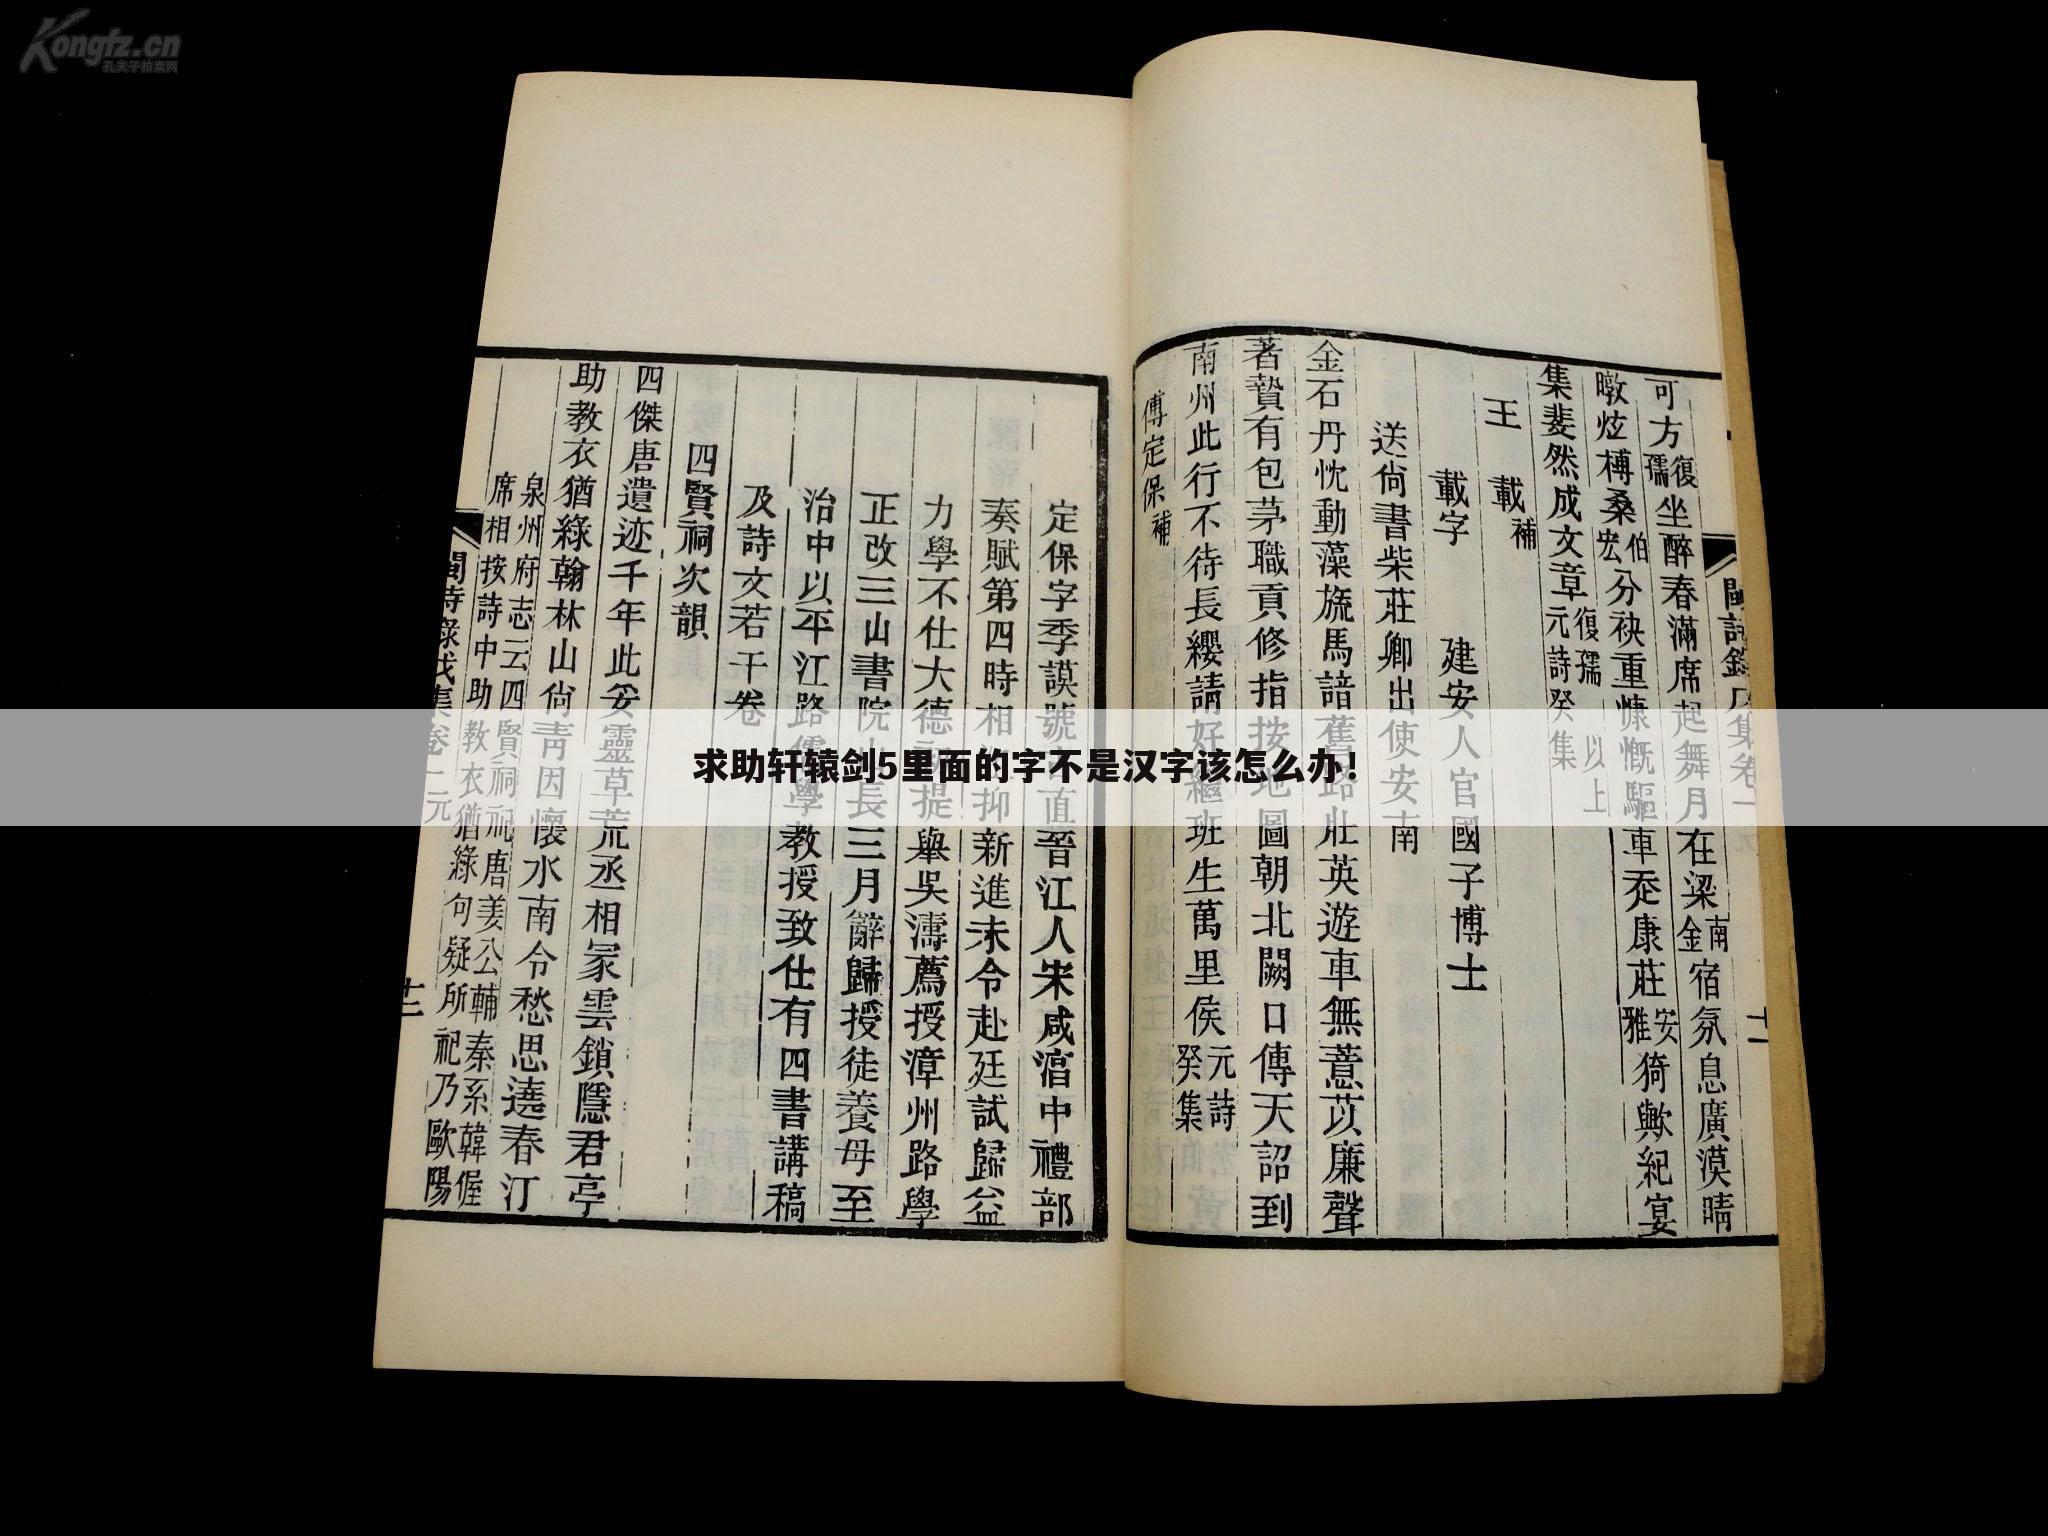 Kongfz.cn
孔夫子拍卖网
求助轩辕剑5里面的字不是汉字该怎么办！
可方復孺坐醉春滿席起舞月在梁南金宿氛息廣漠晴
暾炫榑桑伯宏分袂重慷慨驅車忝康莊安雅猗歟紀宴
集斐然成文章復孺元詩癸集以上
王載補
載字建安人官國子博士
送尙書柴莊卿出使安南
金石丹忱動藻旒馬諳舊路壯英遊車無薏苡廉聲
著贄有包茅職貢修指按地圖朝北闕口傳天詔到
南州此行不待長纓請好繼班生萬里侯元詩癸集
傅定保補
定保字季謨號古直晉江人宋咸淳中禮部
奏賦第四時相抑新進未令赴廷試歸益
力學不仕大德初提舉吳濤薦授漳州路學
正改三山書院山長三月辭歸授徒養母至
治中以平江路儒學教授致仕有四書講稿
及詩文若干卷
四賢祠次韻
四傑唐遺迹千年此妥靈草荒丞相冢雲鎖隱君亭
助教衣猶綠翰林山尙靑因懷水南令愁思遶春汀
泉州府志云四賢祠祀唐姜公輔秦系韓偓
席相按詩中助教衣猶綠句疑所祀乃歐陽